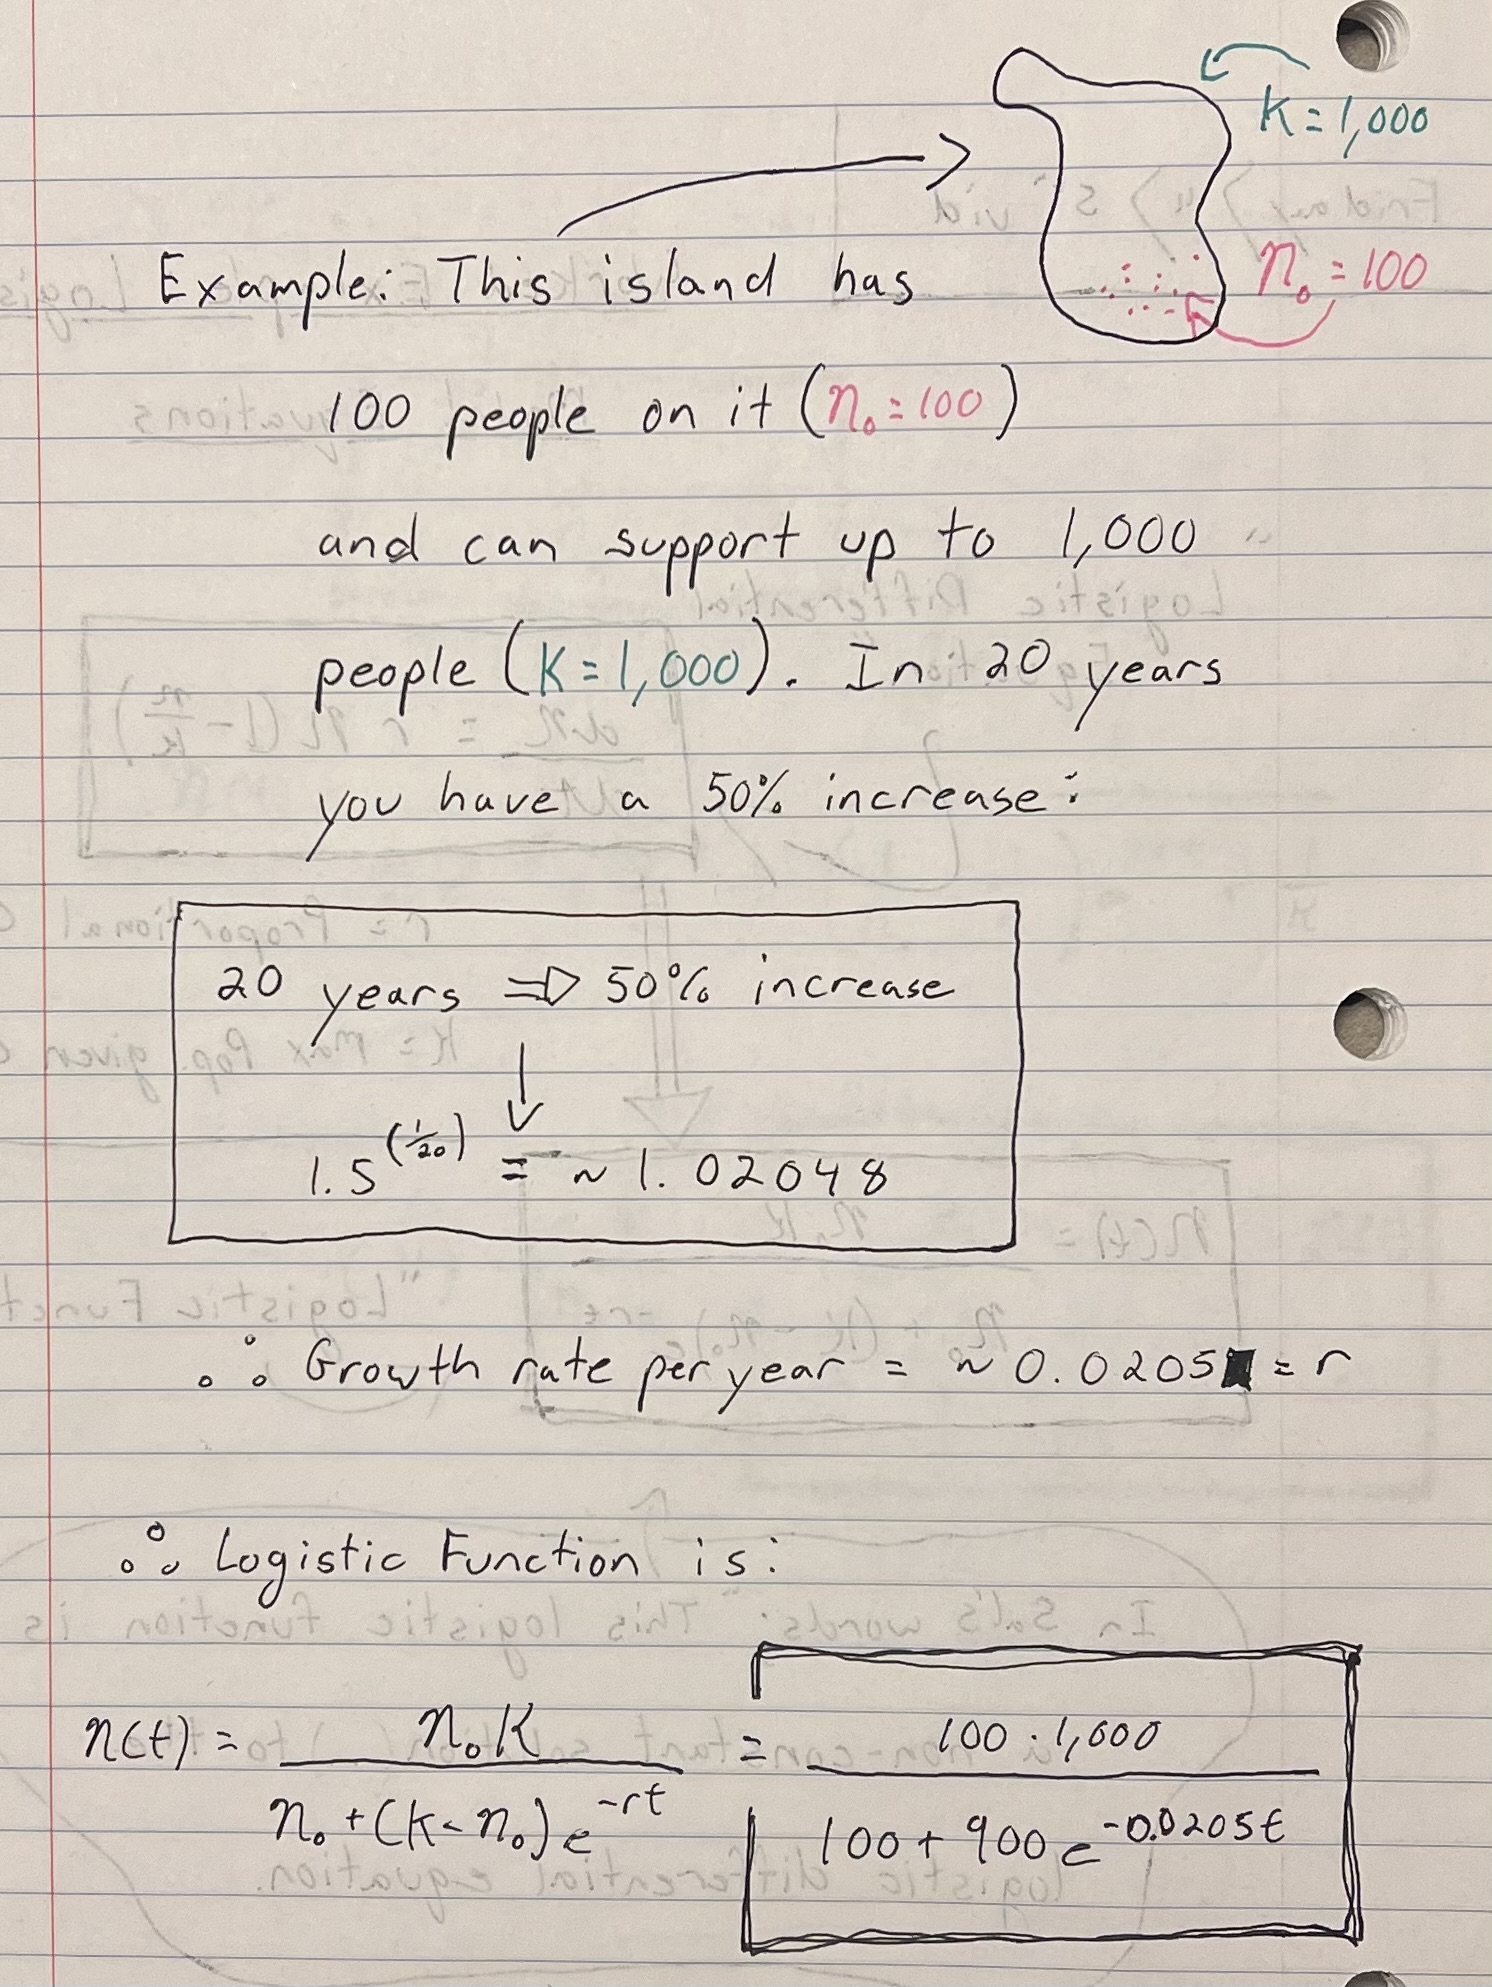 K=1,000
n₀=100
Example: This island has
100 people on it (n₀=100)
and can support up to 1,000
people (K=1,000). In 20 years
you have a 50% increase:
20 years ⇒ 50% increase
↓
1.5^(1/20) = ~1.02048
∴ Growth rate per year = ~0.0205 = r
∴ Logistic Function is:
n(t) = n₀K / n₀+(K-n₀)e^-rt = 100·1,000 / 100+900e^-0.0205t